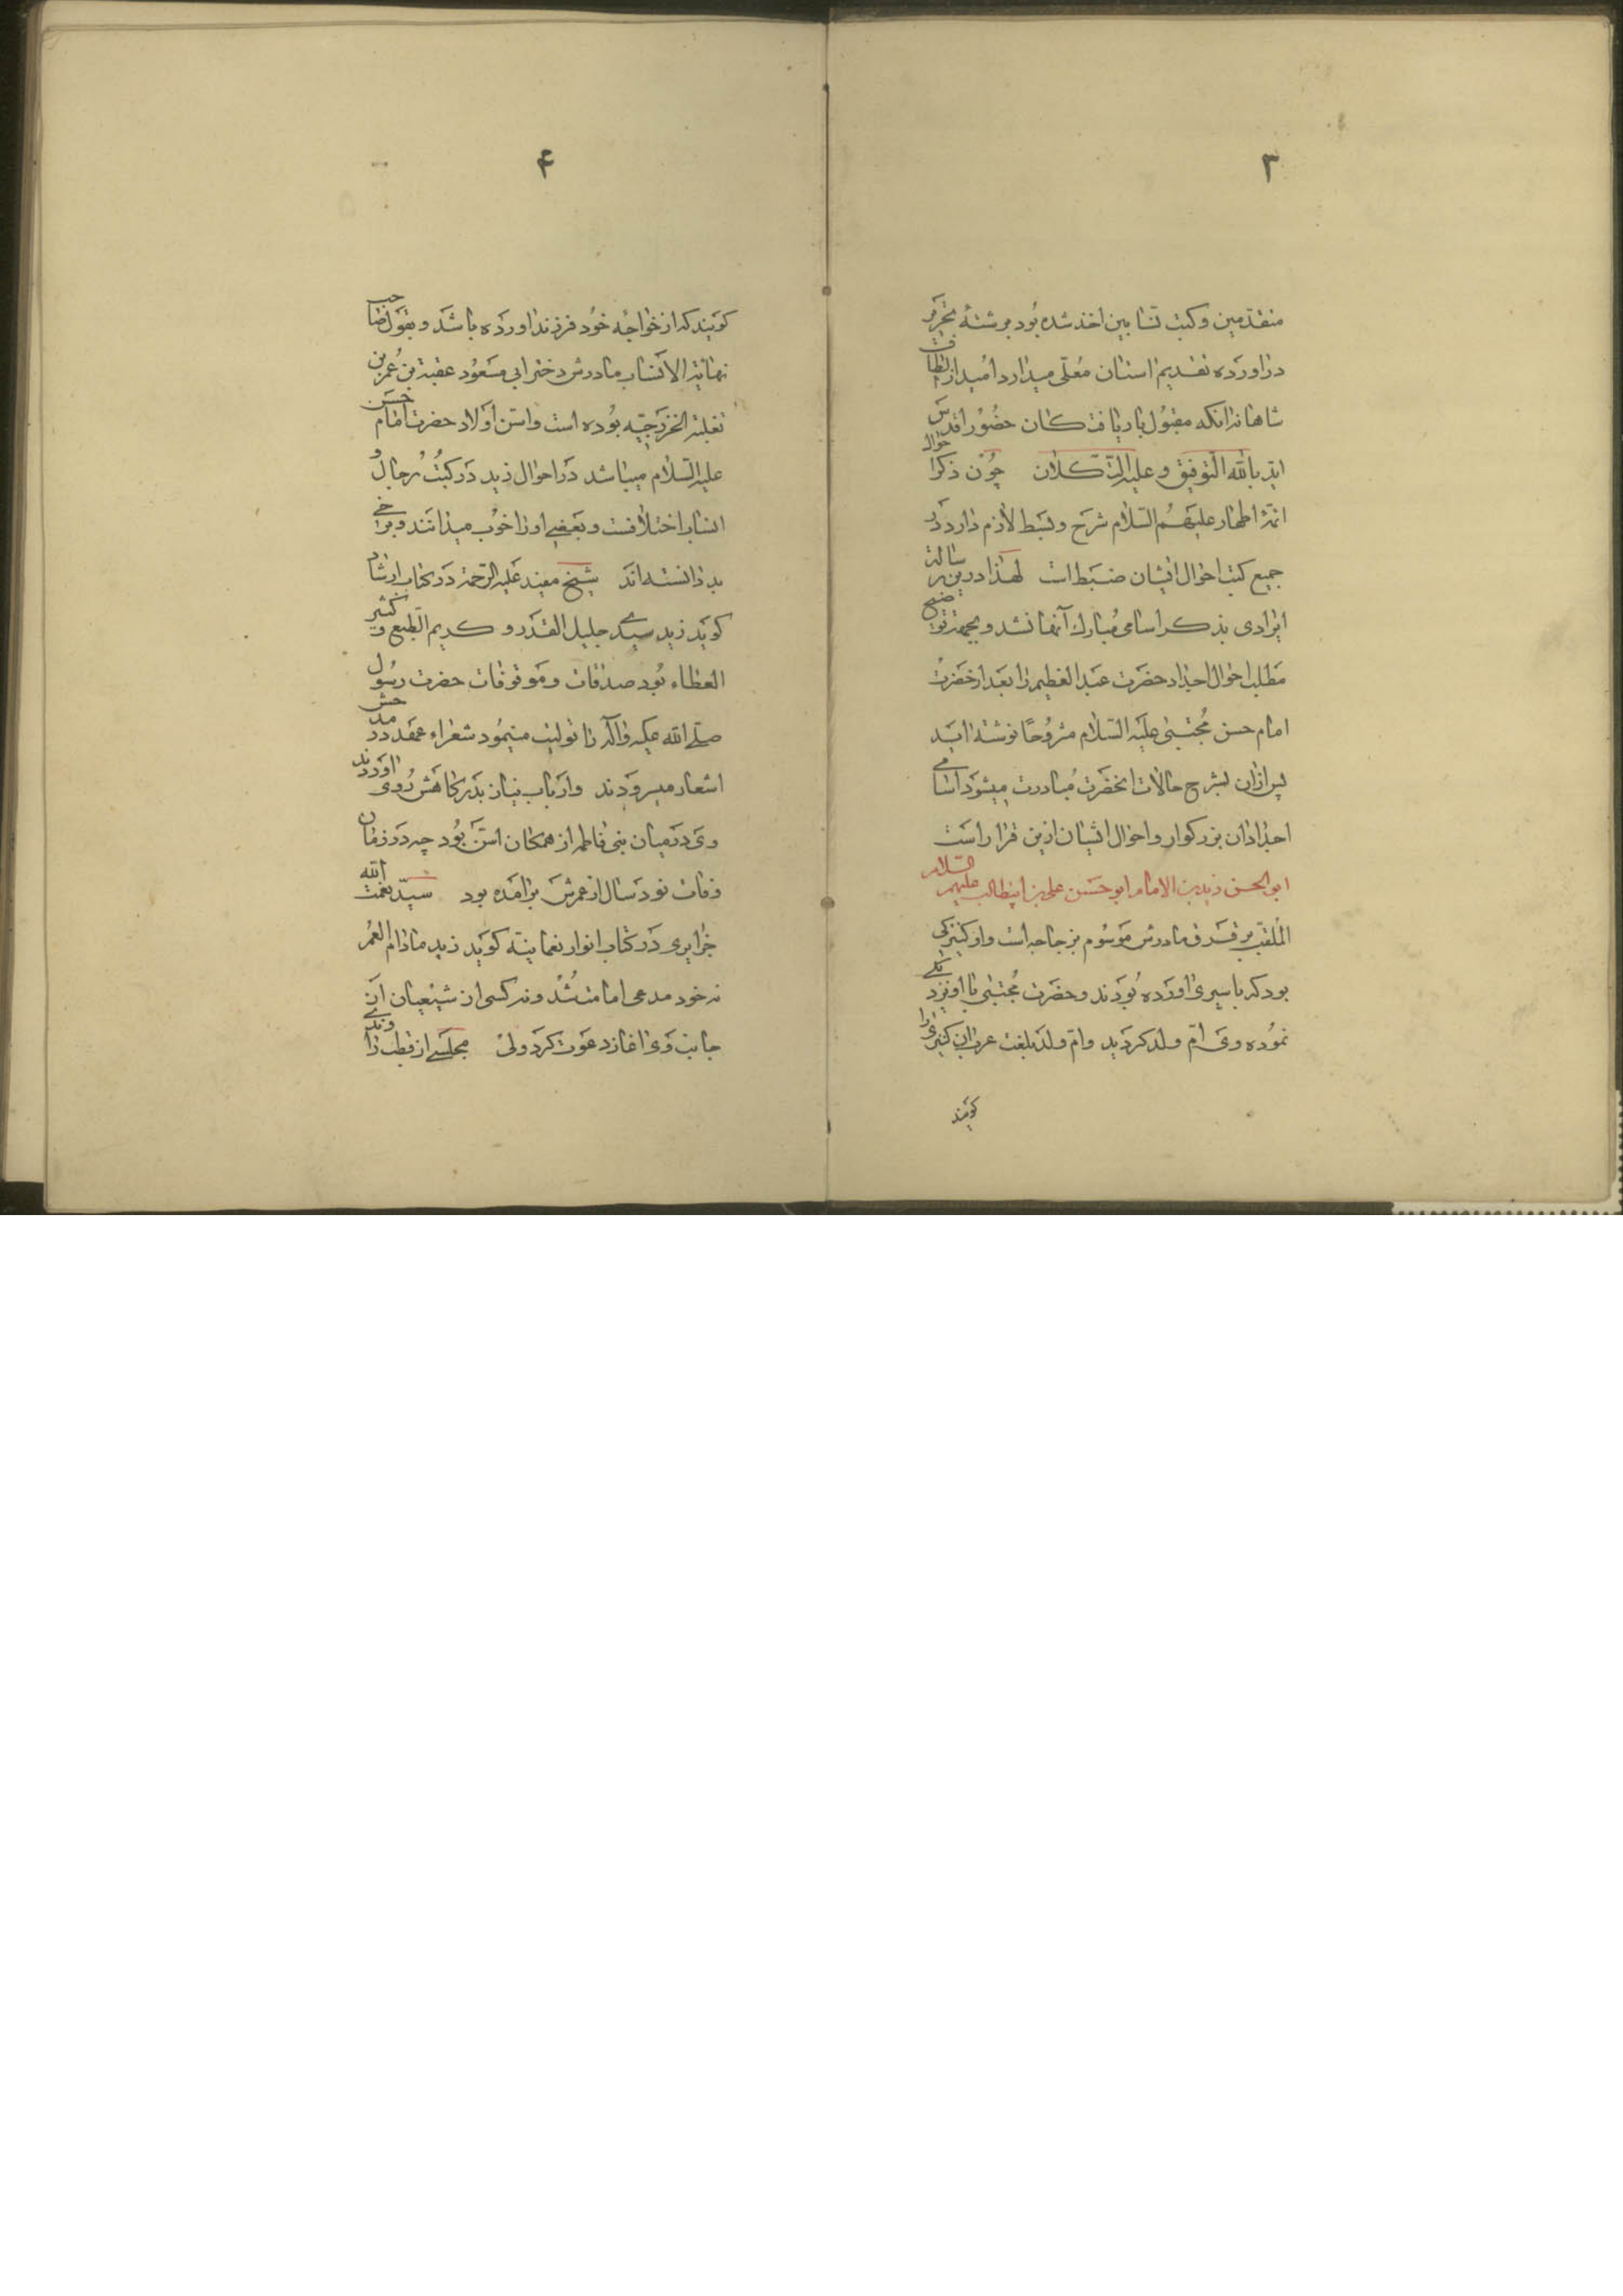 ۳
متقدمین و کتب نسابین اخذ شده بود برشتهٔ تحریر
دراورده تقدیم استان معلی میدارد امید از الطاف
شاهانه انکه مقبول باریافتکان حضور اقدس
اید بالله التوفیق و علیه التکلان چون ذکر احوال
ائمهٔ اطهار علیهم السلام شرح و بسط لازم دارد و در
جمیع کتب احوال ایشان ضبط است لهذا درین رساله
ایرادی بذکر اسامی مبارک آنها نشد و بجهة توضیح
مطلب احوال اجداد حضرت عبد العظیم را بعد از حضرت
امام حسن مجتبی علیه السلام مشروحا نوشته اید
پس ازان بشرح حالات انحضرت مبادرت میشود اسامی
اجدادان بزرکوار و احوال ایشان ازین قرار است
ابو الحسن زید بن الامام ابو حسن علی بن ابیطالب علیهم السلام
الملقب مادرش موسوم بزجاجه است و او کنیزکی
بود که باسیری اورده بودند و حضرت مجتبی با او نزدیکی
نموده وی ام ولد کردید و ام ولد بلغت عرب ان کنیزی را
کویند
۴
کویند که از خواجه خود فرزند اورده باشد و بقول صاحب
نهایة الانساب مادرش دختر ابی مسعود عقبة بن عمر بن
ثعلبة الخزرجیه بوده است و اسن اولاد حضرت امام حسن
علیه السلام میباشد در احوال زید در کتب رجال و
انساب اختلافست و بعضی او را خوب میدانند و برخی
بد دانسته اند شیخ مفید علیه الرحمة در کتاب ارشاد
کوید زید سیدی جلیل القدر و کریم الطبع و کثیر
العطاء بود صدقات و موقوفات حضرت رسول
صلی الله علیه و اله را تولیت مینمود شعراء عهد در مدحش
اشعار میسرودند و ارباب نیاز بدرکاهش روی اوردند
وی در میان بنی فاطمه از همکان اسن بود چه در زمان
وفات نود سال از عمرش برامده بود سید نعمت الله
جزایری در کتاب انوار نعمانیه کوید زید مادام العمر
نه خود مدعی امامت شد و نه کسی از شیعیان ان
جانب وی اغاز دعوت کرد ولی مجلسی از قطب راوندی